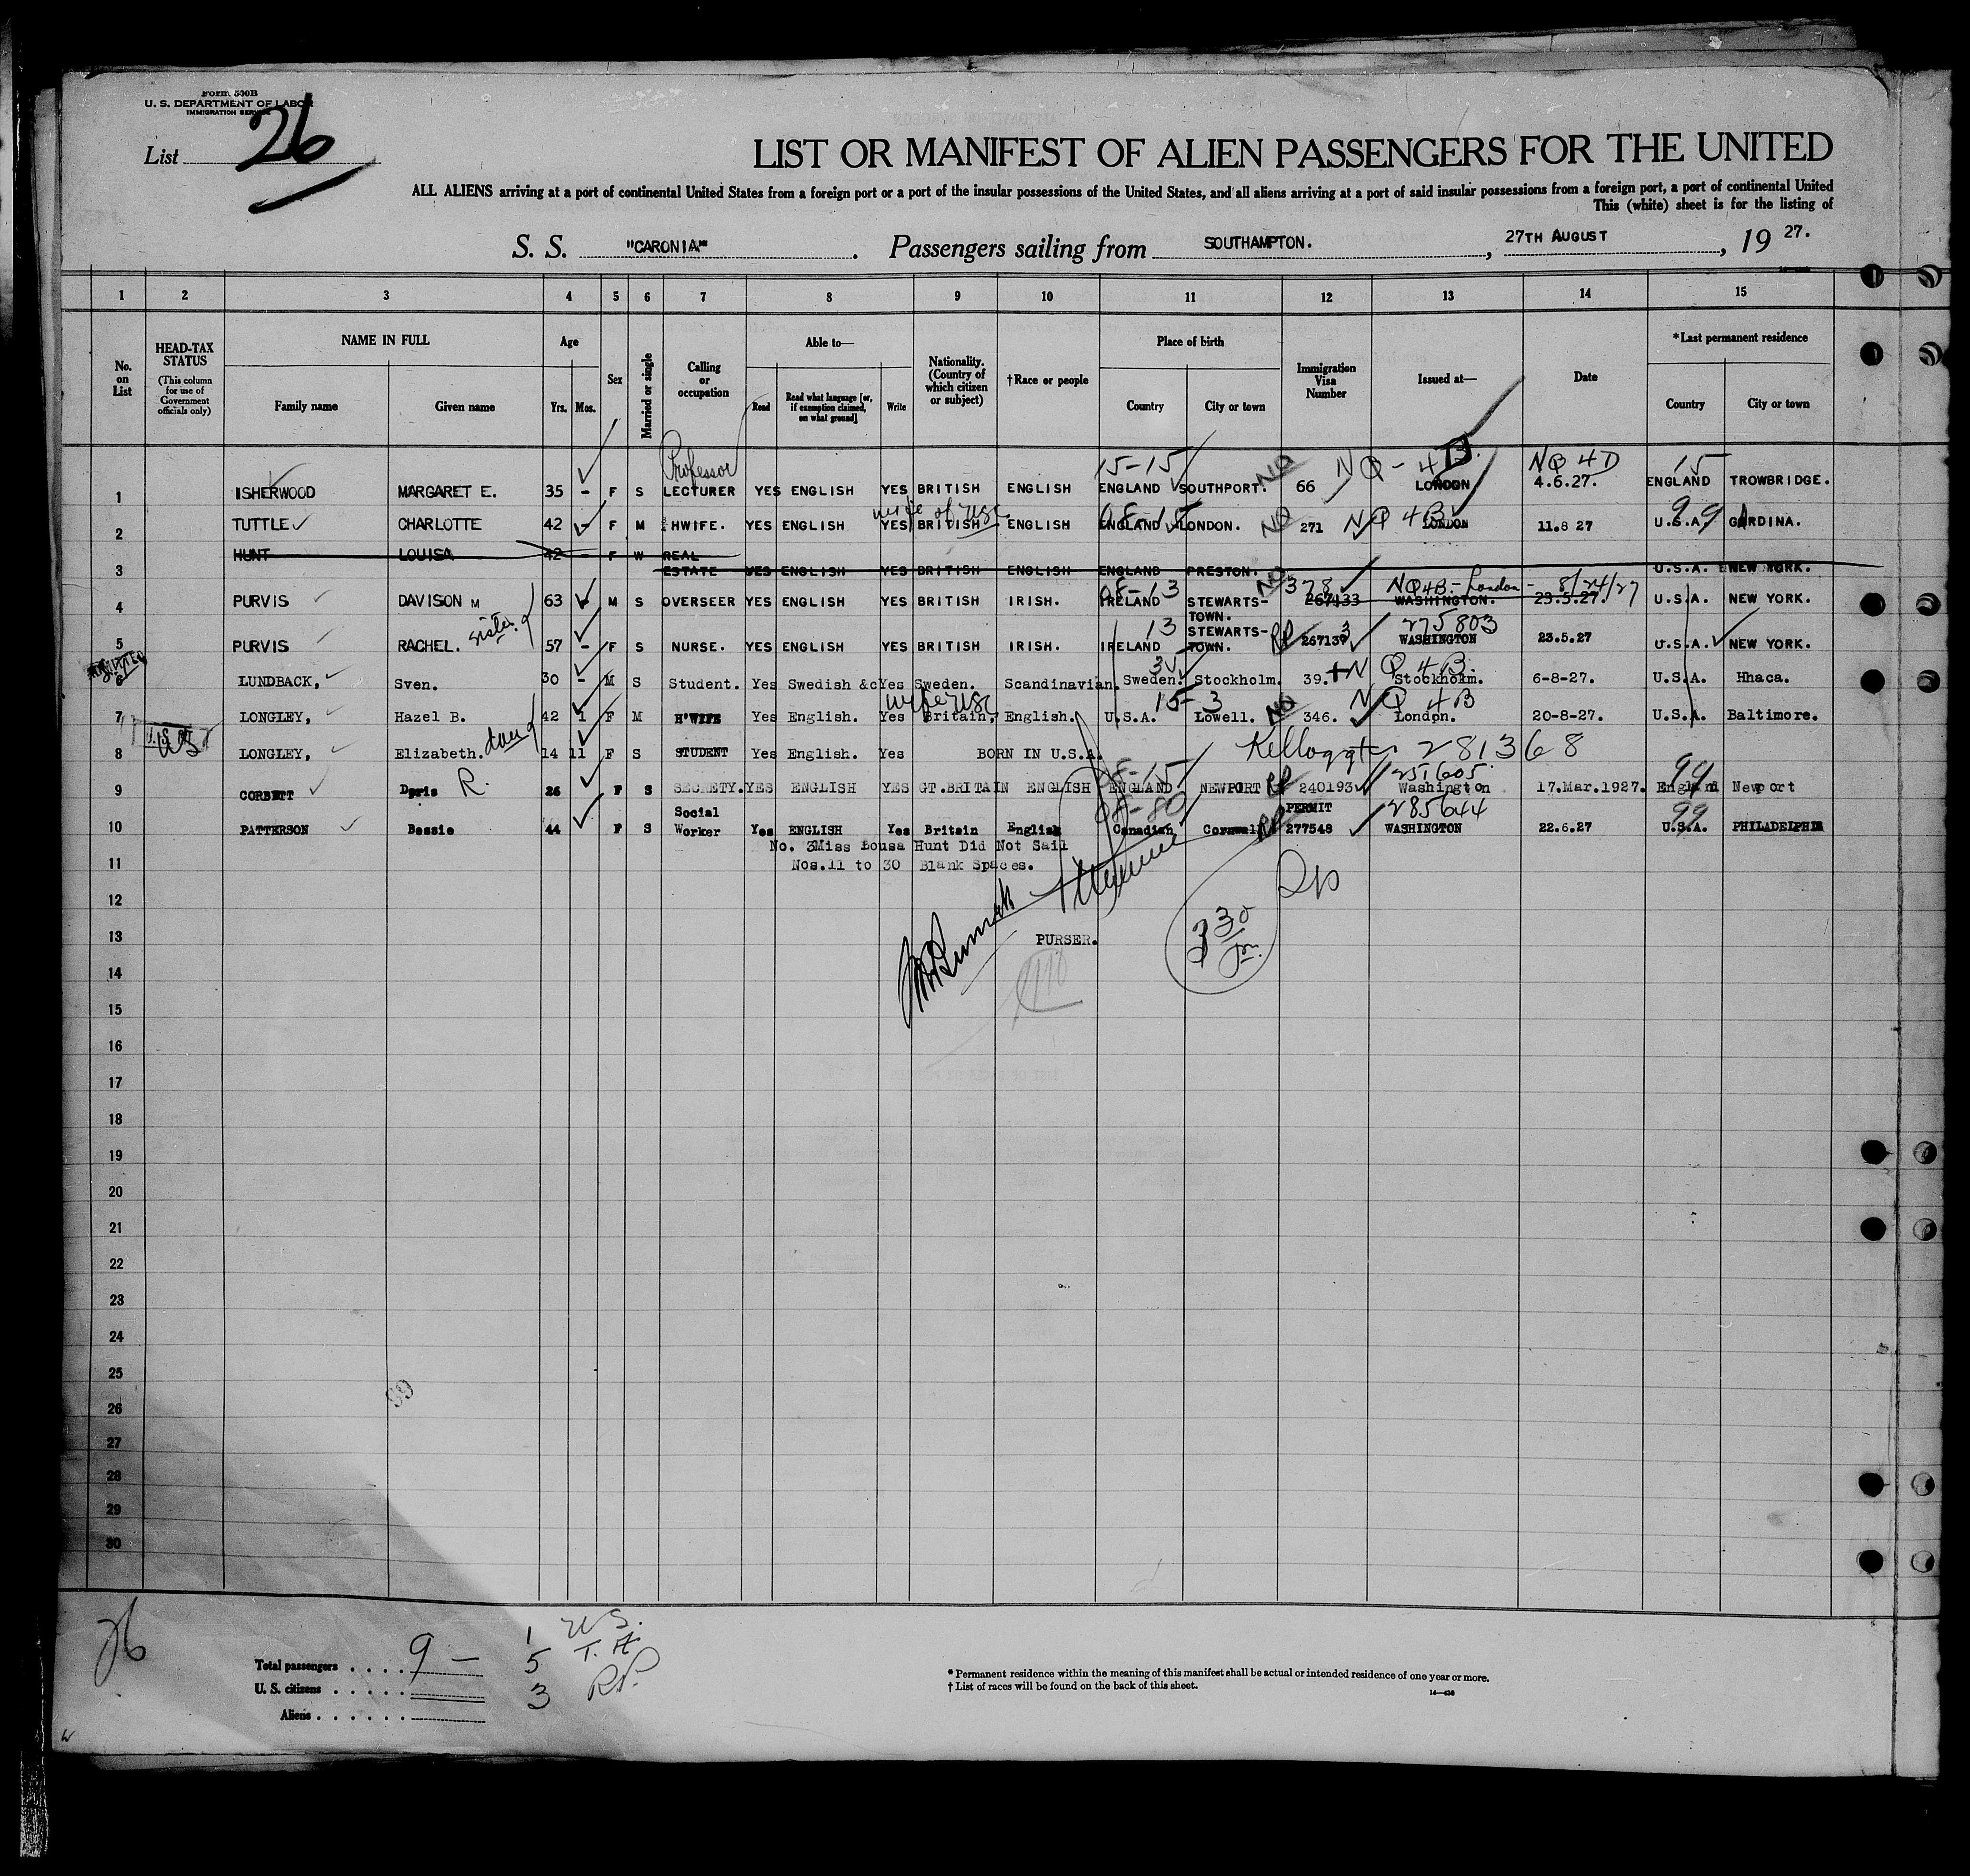 Form 500B
U. S. DEPARTMENT OF LABOR
IMMIGRATION SERVICE
List 26
LIST OR MANIFEST OF ALIEN PASSENGERS FOR THE UNITED
ALL ALIENS arriving at a port of continental United States from a foreign port or a port of the insular possessions of the United States, and all aliens arriving at a port of said insular possessions from a foreign port, a port of continental United
This (white) sheet is for the listing of
S. S. "CARONIA" . Passengers sailing from SOUTHAMPTON. , 27TH AUGUST , 19 27.
1 2 3 4 5 6 7 8 9 10 11 12 13 14 15
No. on List
HEAD-TAX STATUS
(This column for use of Government officials only)
NAME IN FULL
Family name Given name
Age
Yrs. Mos.
Sex
Married or single
Calling or occupation
Able to—
Read
Read what language [or, if exemption claimed, on what ground]
Write
Nationality. (Country of which citizen or subject)
†Race or people
Place of birth
Country City or town
Immigration Visa Number
Issued at—
Date
*Last permanent residence
Country City or town
Professor 15-15 NQ-4D. NQ 4D 15
1 ISHERWOOD MARGARET E. 35 - F S LECTURER YES ENGLISH YES BRITISH ENGLISH ENGLAND SOUTHPORT. NO 66 LONDON 4.6.27. ENGLAND TROWBRIDGE.
wife of USC 08-15 99
2 TUTTLE CHARLOTTE 42 - F M HWIFE. YES ENGLISH YES BRITISH ENGLISH ENGLAND LONDON. NO 271 NQ 4B LONDON 11.8 27 U.S.A. GARDINA.
3 HUNT LOUISA 42 - F W REAL ESTATE YES ENGLISH YES BRITISH ENGLISH ENGLAND PRESTON. U.S.A. NEW YORK.
08-13 NO 378 NQ4B-London- 8/24/27
4 PURVIS DAVISON M 63 - M S OVERSEER YES ENGLISH YES BRITISH IRISH. IRELAND STEWARTS-TOWN. 267133 WASHINGTON. 23.5.27. U.S.A. NEW YORK.
sister 13 275803
5 PURVIS RACHEL. 57 - F S NURSE. YES ENGLISH YES BRITISH IRISH. IRELAND STEWARTS-TOWN. RP 267139 3 WASHINGTON 23.5.27 U.S.A. NEW YORK.
ADMITTED NQ 4B.
6 LUNDBACK, Sven. 30 - M S Student. Yes Swedish &c Yes Sweden. Scandinavian. Sweden. Stockholm. 39. Stockholm. 6-8-27. U.S.A. Hhaca.
wife USC 15-3 NQ 4B
7 LONGLEY, Hazel B. 42 1 F M H'WIFE Yes English. Yes Britain, English. U.S.A. Lowell. NO 346. London. 20-8-27. U.S.A. Baltimore.
US
8 LONGLEY, Elizabeth. dau 14 11 F S STUDENT Yes English. Yes BORN IN U.S.A. Kellogg 281368
08-15 251605 99
9 CORBETT Doris R. 26 F S SECRETY. YES ENGLISH YES GT.BRITAIN ENGLISH ENGLAND NEWPORT RP 240193 Washington 17.Mar.1927. England Newport
08-80 PERMIT 285644 99
10 PATTERSON Bessie 44 F S Social Worker Yes ENGLISH Yes Britain English Canadian Cornwall RP 277548 WASHINGTON 22.6.27 U.S.A. PHILADELPHIA
No. 3 Miss Lousa Hunt Did Not Sail
11 Nos.11 to 30 Blank Spaces.
12
13 PURSER. 3 30
14
15
16
17
18
19
20
21
22
23
24
25
26
27
28
29
30
26
Total passengers . . . . 9 - 1 US.
U. S. citizens . . . . . 5 T. H.
Aliens . . . . . . 3 RP.
* Permanent residence within the meaning of this manifest shall be actual or intended residence of one year or more.
† List of races will be found on the back of this sheet.